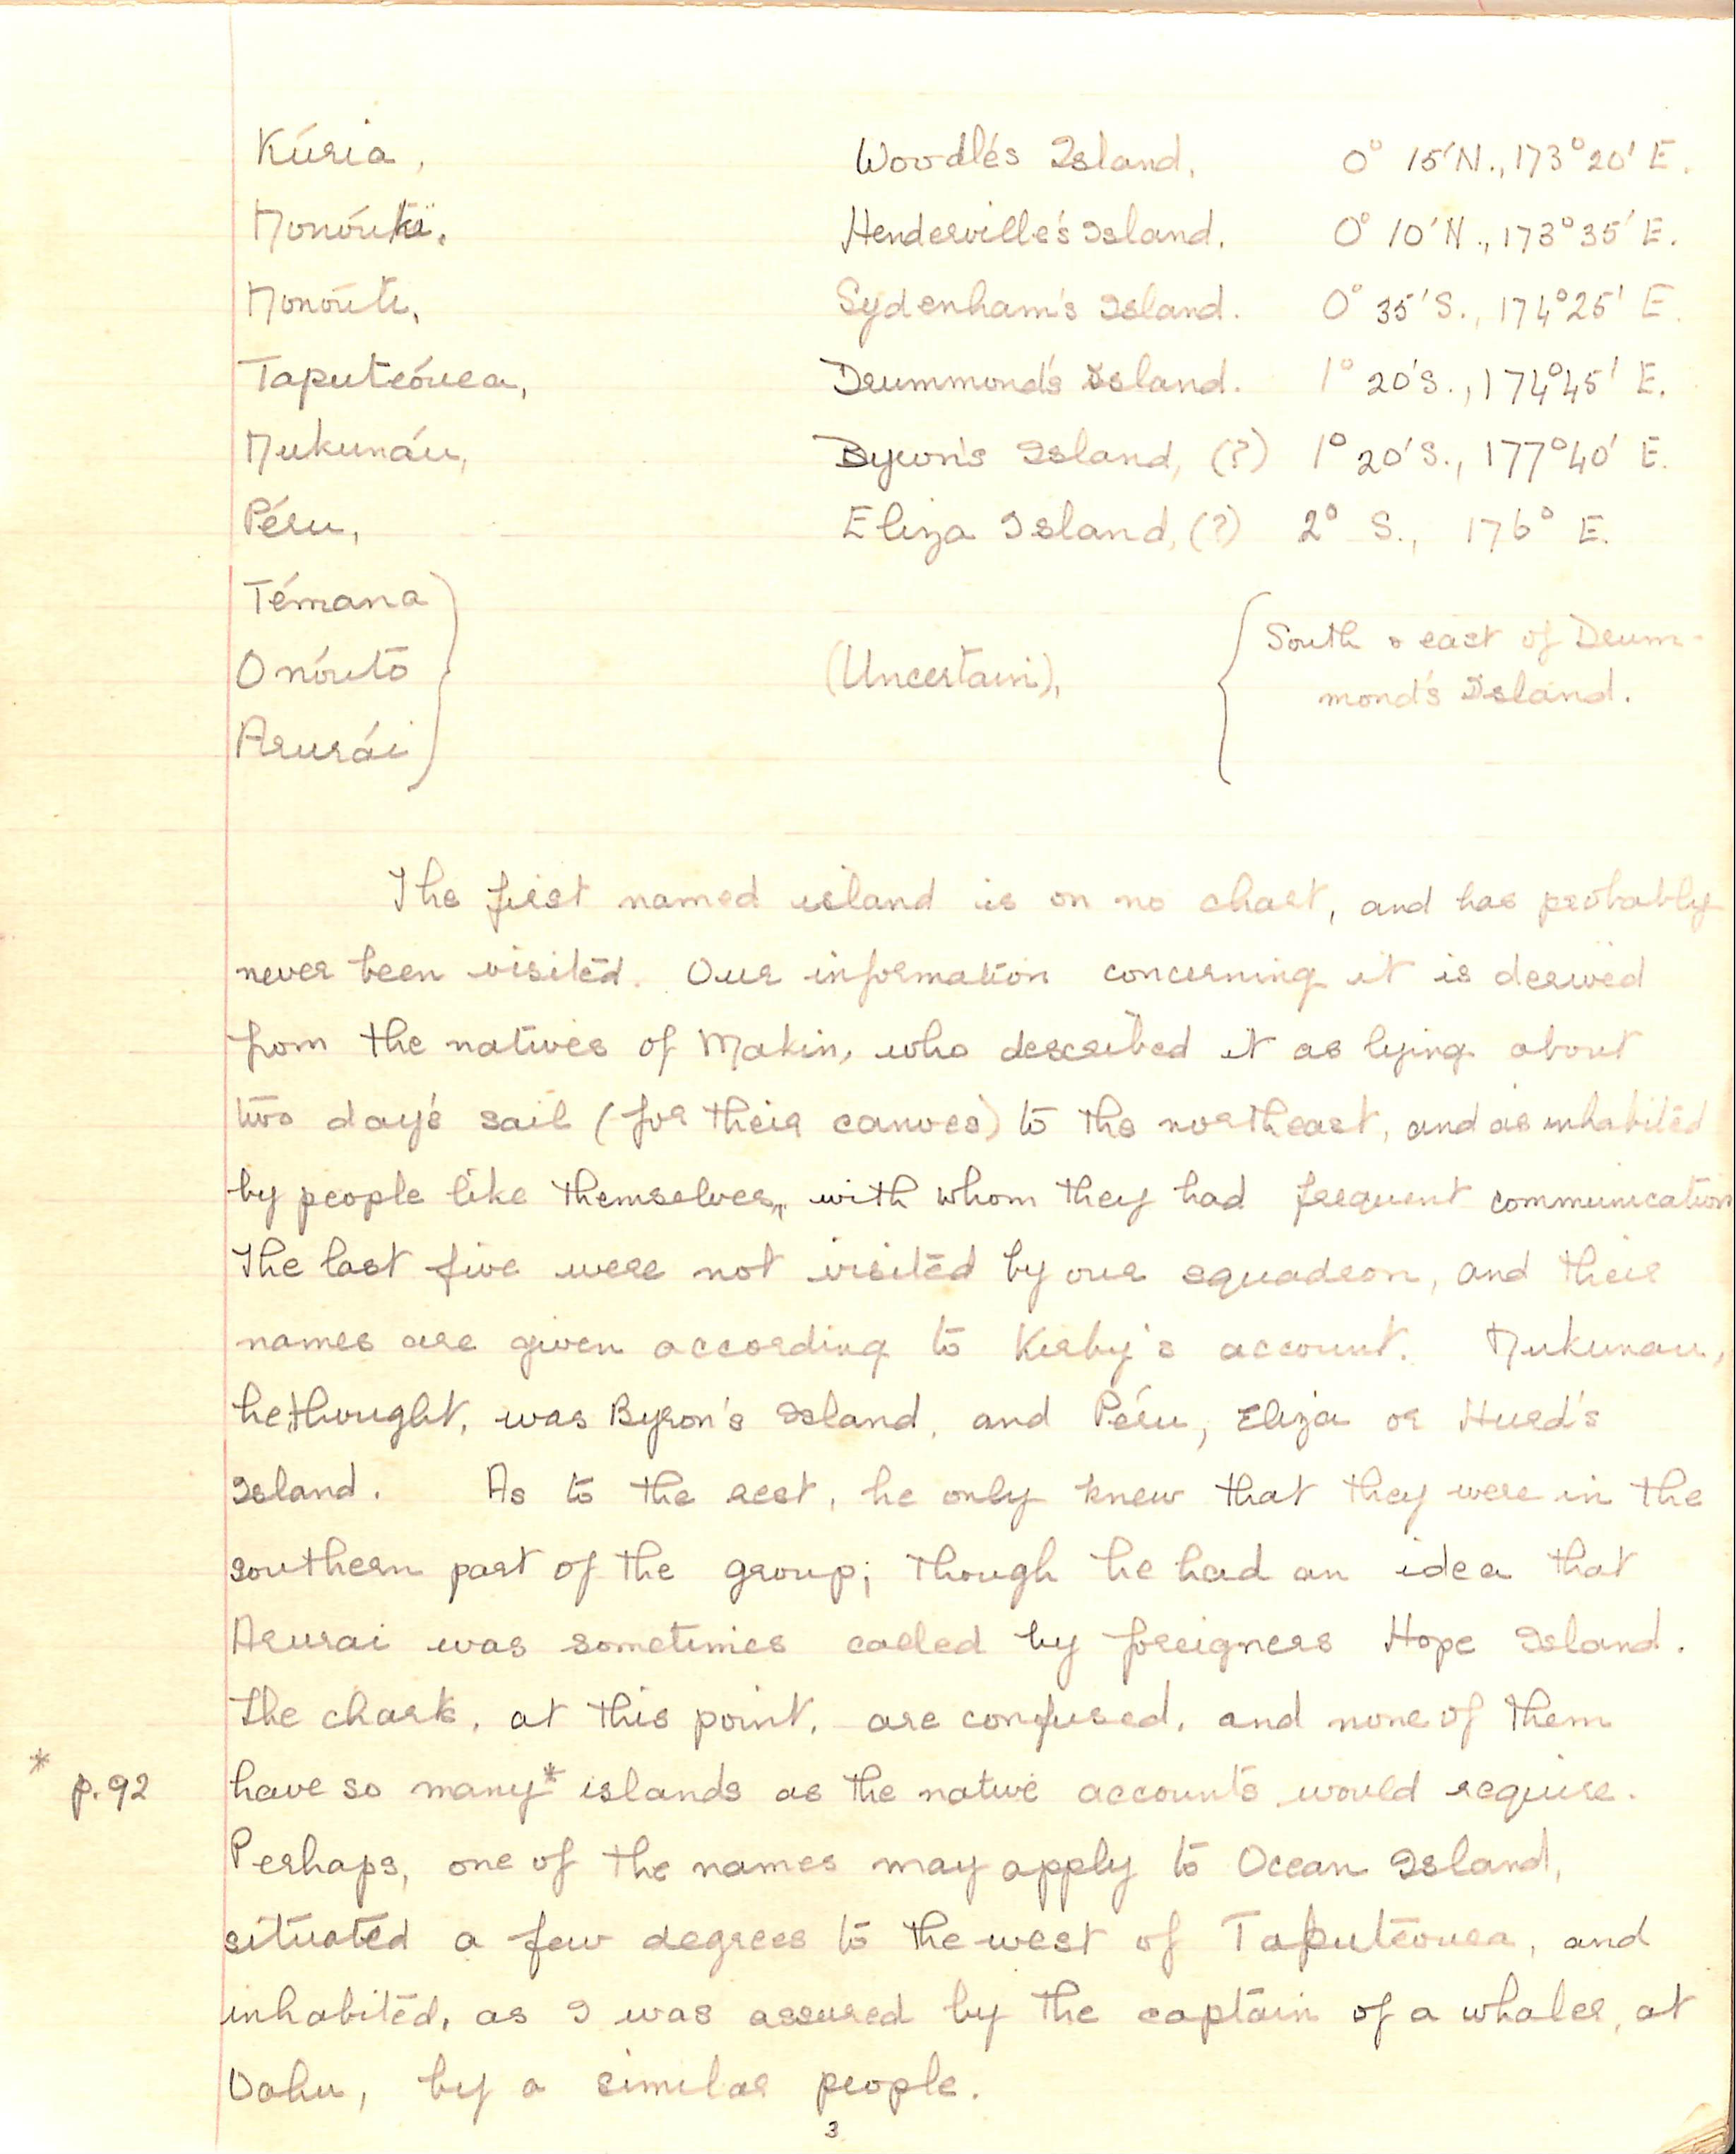 Kúria, Woodle's Island, 0° 15′ N., 173° 20′ E.
Nonóuki, Henderville's Island, 0° 10′ N., 173° 35′ E.
Nonóuti, Sydenham's Island. 0° 35′ S., 174° 25′ E.
Taputeóuea, Drummond's Island. 1° 20′ S., 174° 45′ E.
Nukunáu, Byron's Island, (?) 1° 20′ S., 177° 40′ E.
Péru, Eliza Island, (?) 2° S., 176° E.
Témana
Onóuto
Arurái
(Uncertain),
South & east of Drum-
mond's Island.
The first named island is on no chart, and has probably
never been visited. Our information concerning it is derived
from the natives of Makin, who described it as lying about
two day's sail (for their canoes) to the northeast, and as inhabited
by people like themselves, with whom they had frequent communication
The last five were not visited by our squadron, and their
names are given according to Kirby's account. Nukunau,
he thought, was Byron's Island, and Péru, Eliza or Hurd's
Island. As to the rest, he only knew that they were in the
southern part of the group; though he had an idea that
Arurai was sometimes called by foreigners Hope Island.
The charts, at this point, are confused, and none of them
* p.92 have so many* islands as the native accounts would require.
Perhaps, one of the names may apply to Ocean Island,
situated a few degrees to the west of Taputeouea, and
inhabited, as I was assured by the captain of a whaler, at
Oahu, by a similar people.
3